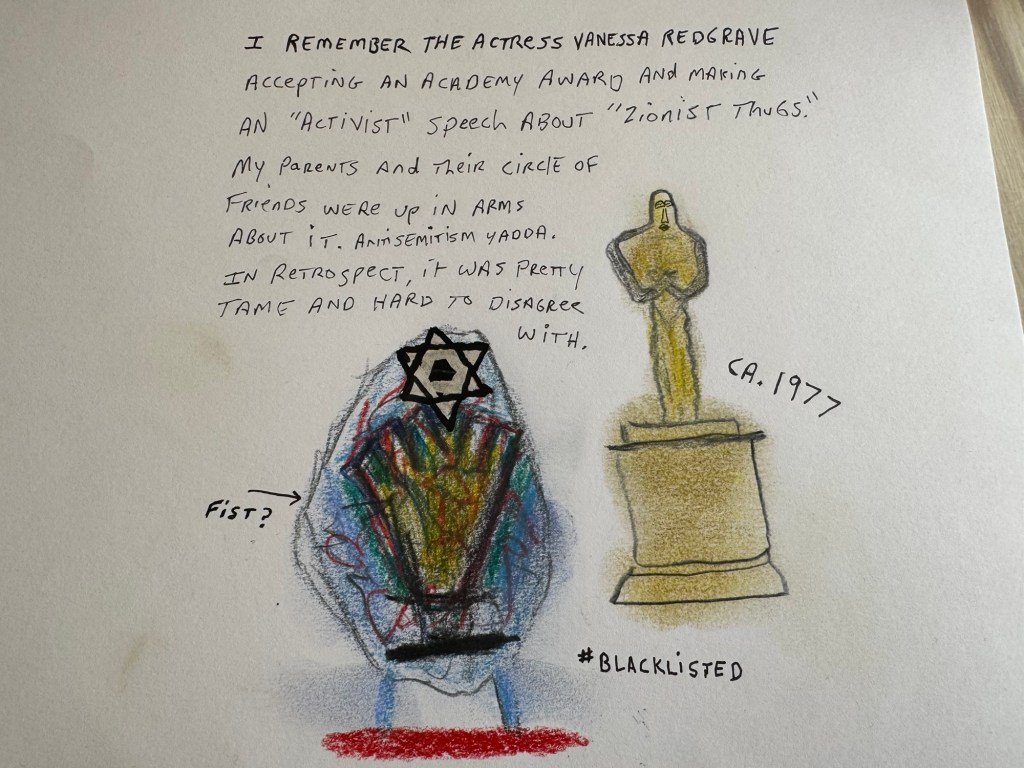 I REMEMBER THE ACTRESS VANESSA REDGRAVE
ACCEPTING AN ACADEMY AWARD AND MAKING
AN "ACTIVIST" SPEECH ABOUT "ZIONIST THUGS."
MY PARENTS AND THEIR CIRCLE OF
FRIENDS WERE UP IN ARMS
ABOUT IT. ANTISEMITISM YADDA.
IN RETROSPECT, IT WAS PRETTY
TAME AND HARD TO DISAGREE
WITH.
CA. 1977
FIST?
#BLACKLISTED